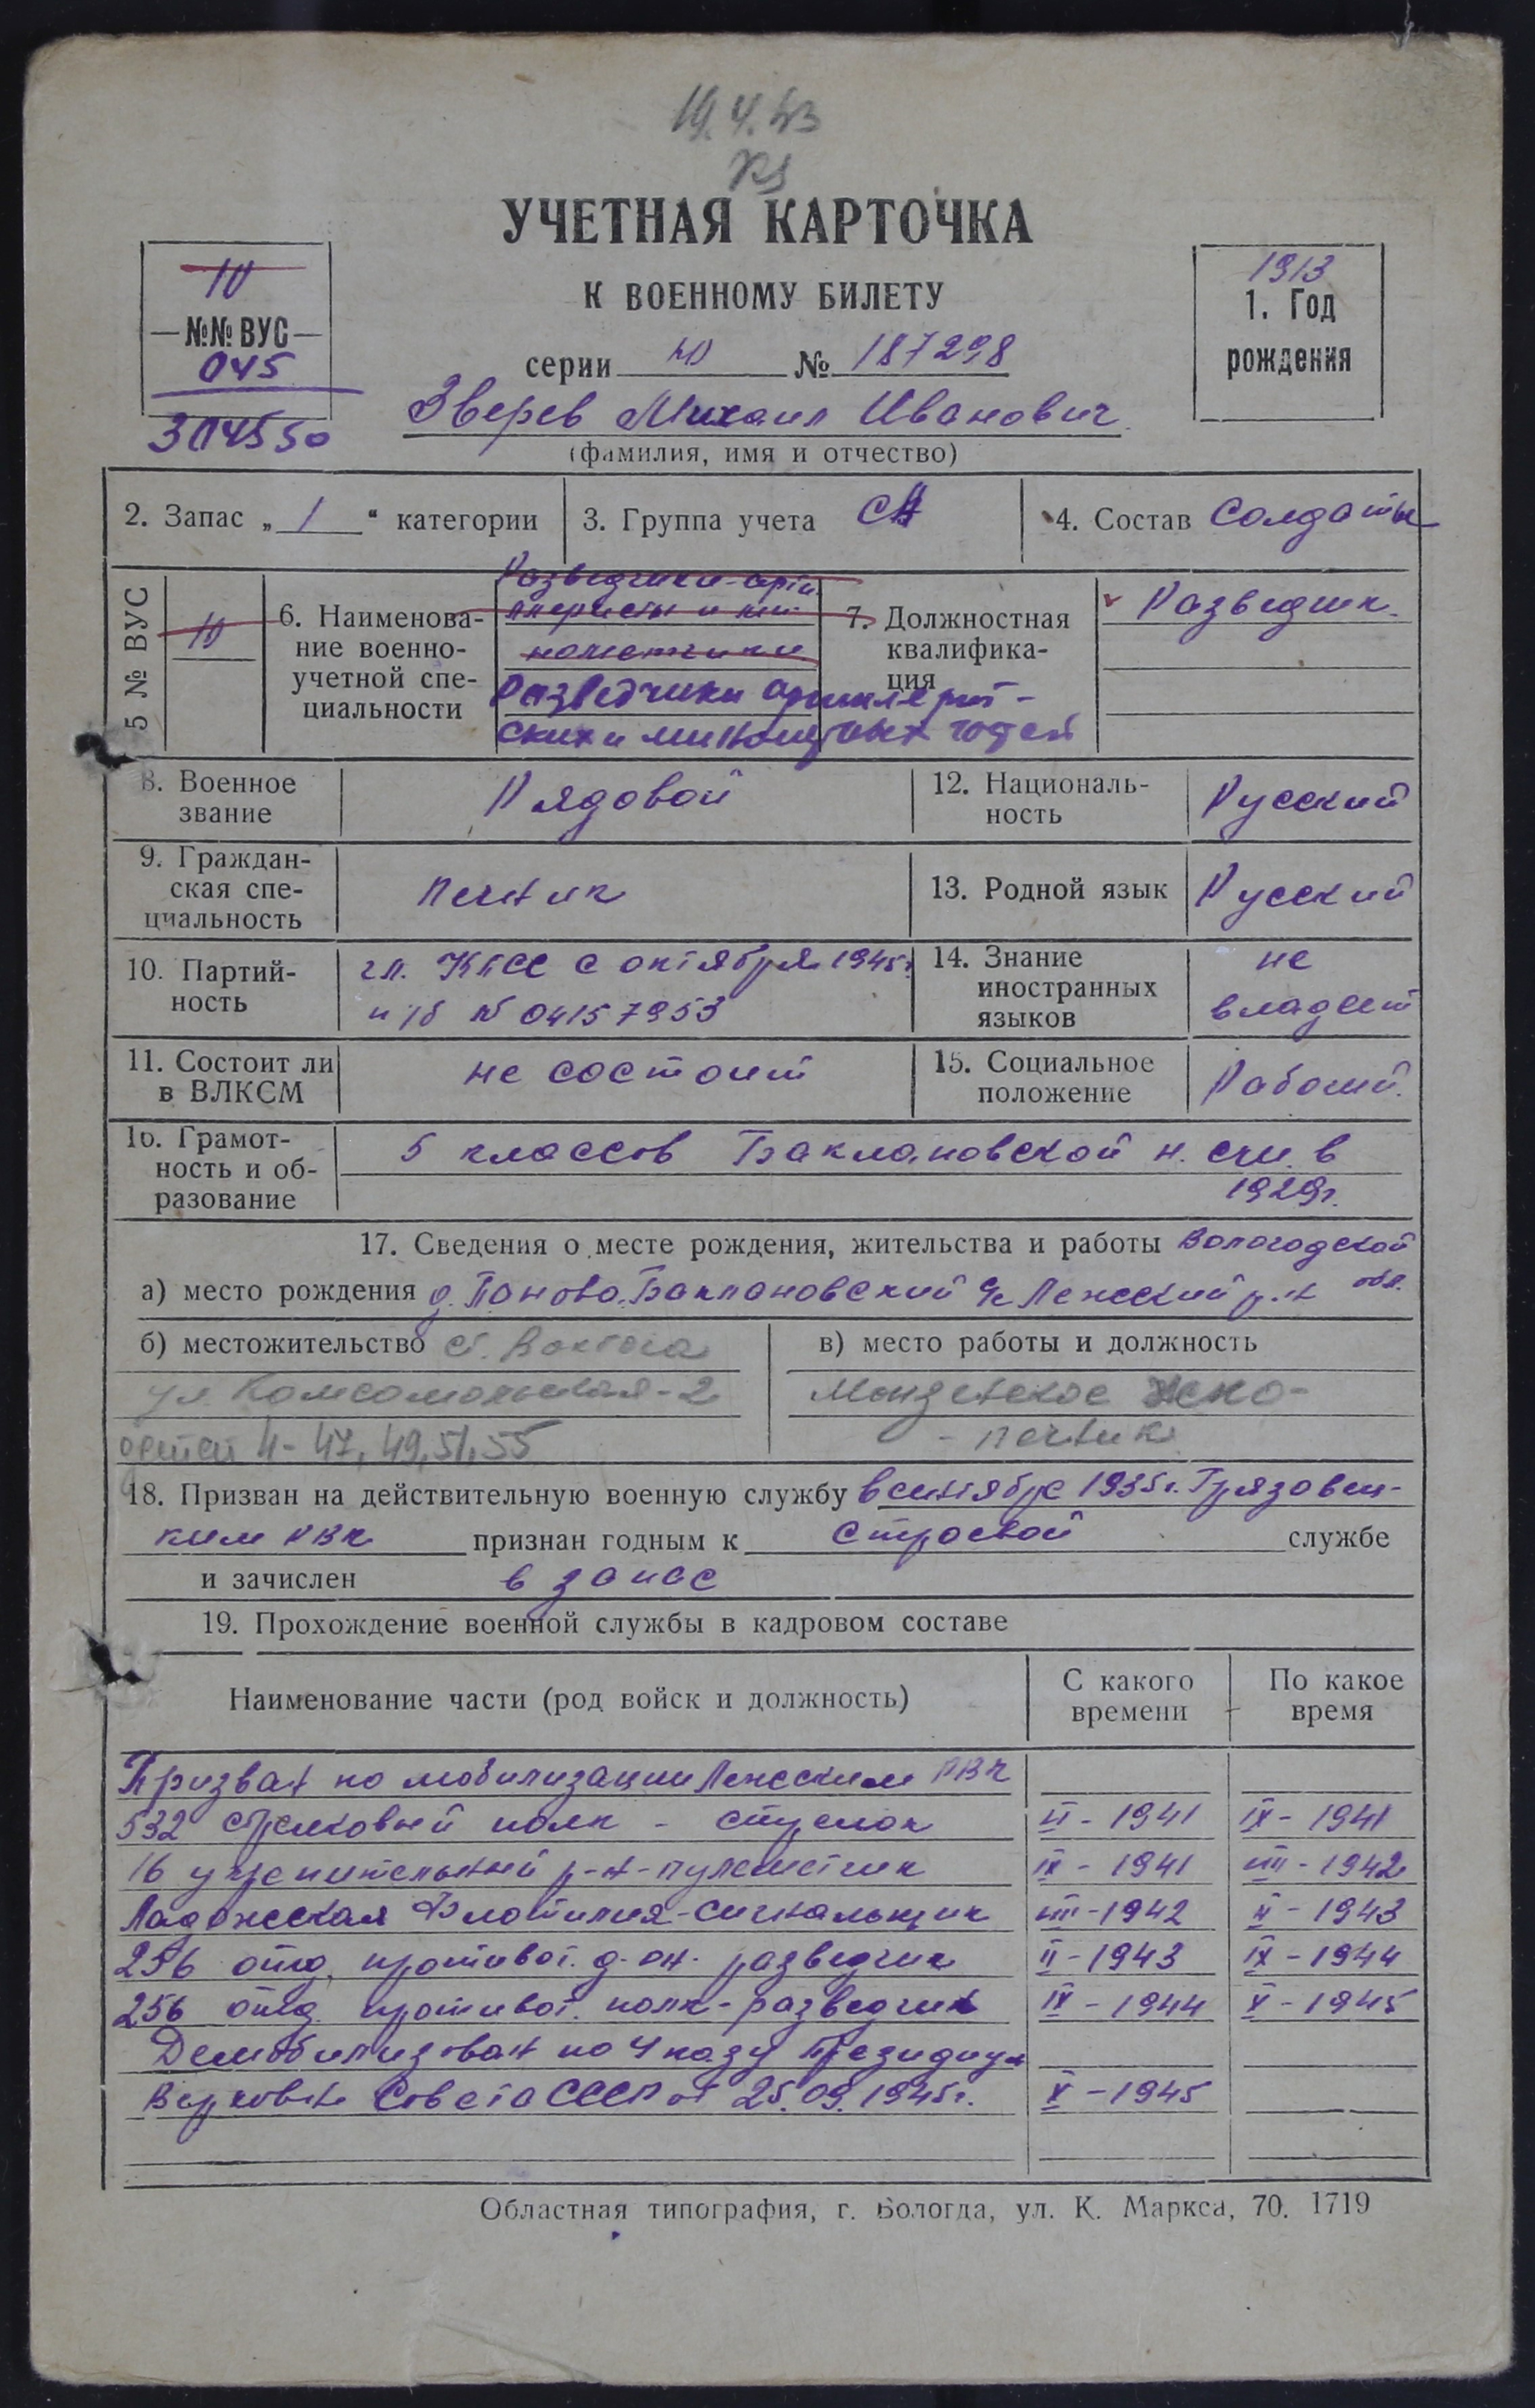 19.4.43
УЧЕТНАЯ КАРТОЧКА
К ВОЕННОМУ БИЛЕТУ
серии Ю № 187298
10
№№ ВУС
045
304550
1913
1. Год
рождения
Зверев Михаил Иванович
(фамилия, имя и отчество)
2. Запас „ 1 “ категории
3. Группа учета СА
4. Состав Солдаты
5 № ВУС
10
6. Наименова-
ние военно-
учетной спе-
циальности
Разведчики-арти
ллеристы и ми-
нометчики
Разведчики артиллерий-
ских и минометных частей
7. Должностная
квалифика-
ция
Разведчик.
8. Военное
звание
Рядовой
12. Националь-
ность
Русский
9. Граждан-
ская спе-
циальность
печник
13. Родной язык
Русский
10. Партий-
ность
чл. КПСС с октября 1945г.
п/б № 04157953
14. Знание
иностранных
языков
не
владеет
11. Состоит ли
в ВЛКСМ
не состоит
15. Социальное
положение
Рабочий.
16. Грамот-
ность и об-
разование
5 классов Баклановской н. ср. в
1929г.
17. Сведения о месте рождения, жительства и работы Вологодской
а) место рождения д. Паново, Баклановский с/с Лежский р-н обл.
б) местожительство ст. Вохтога
ул. Комсомольская-2
детей 4-47, 49, 51, 55
в) место работы и должность
Монзенское
- печник
18. Призван на действительную военную службу в сентябре 1935г. Грязовец-
ким РВК признан годным к строевой службе
и зачислен в запас
19. Прохождение военной службы в кадровом составе
Наименование части (род войск и должность)
С какого
времени
По какое
время
Призван по мобилизации Лежским РВК
532 стрелковый полк - стрелок VI - 1941 IX - 1941
16 укрепительный р-н-пулеметчик IX - 1941 VIII - 1942
Ладожская Флотилия-сигнальщик VIII - 1942 II - 1943
256 отд. противот. д-он. разведчик II - 1943 IX - 1944
256 отд. противот. полк-разведчик IX - 1944 X - 1945
Демобилизован по Указу Президиума
Верховн. Совета СССР от 25.09.1945г. X - 1945
Областная типография, г. Вологда, ул. К. Маркса, 70. 1719